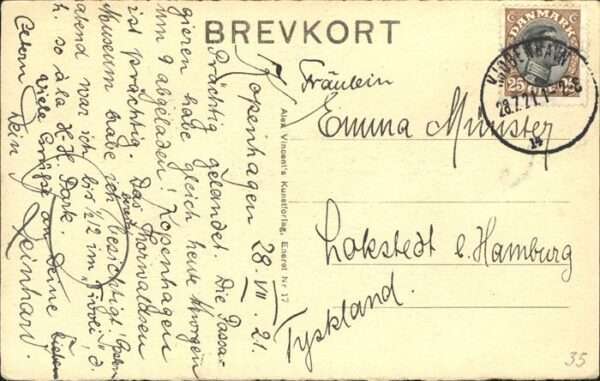 BREVKORT
DANMARK
25 25
KJØBENHAVN
28.7.21.1
14
Fräulein
Emma Munster
Lokstedt b. Hamburg
Tyskland.
Alex Vincent's Kunstforlag, Eneret Nr 17
Kopenhagen 28.VII.21.
Prächtig gelandet. Die Passa-
gieren habe gleich heute Morgen
um 9 abgeladen! Kopenhagen
ist prächtig. Das Thorwaldsen
Museum habe ich bereits besichtigt! Gestern
abend war ich bis 1/2 12 im „Tivoli", d.
h. so à la H-H Park.
viele Grüße an Deine lieben
Eltern
Dein Reinhard.
35